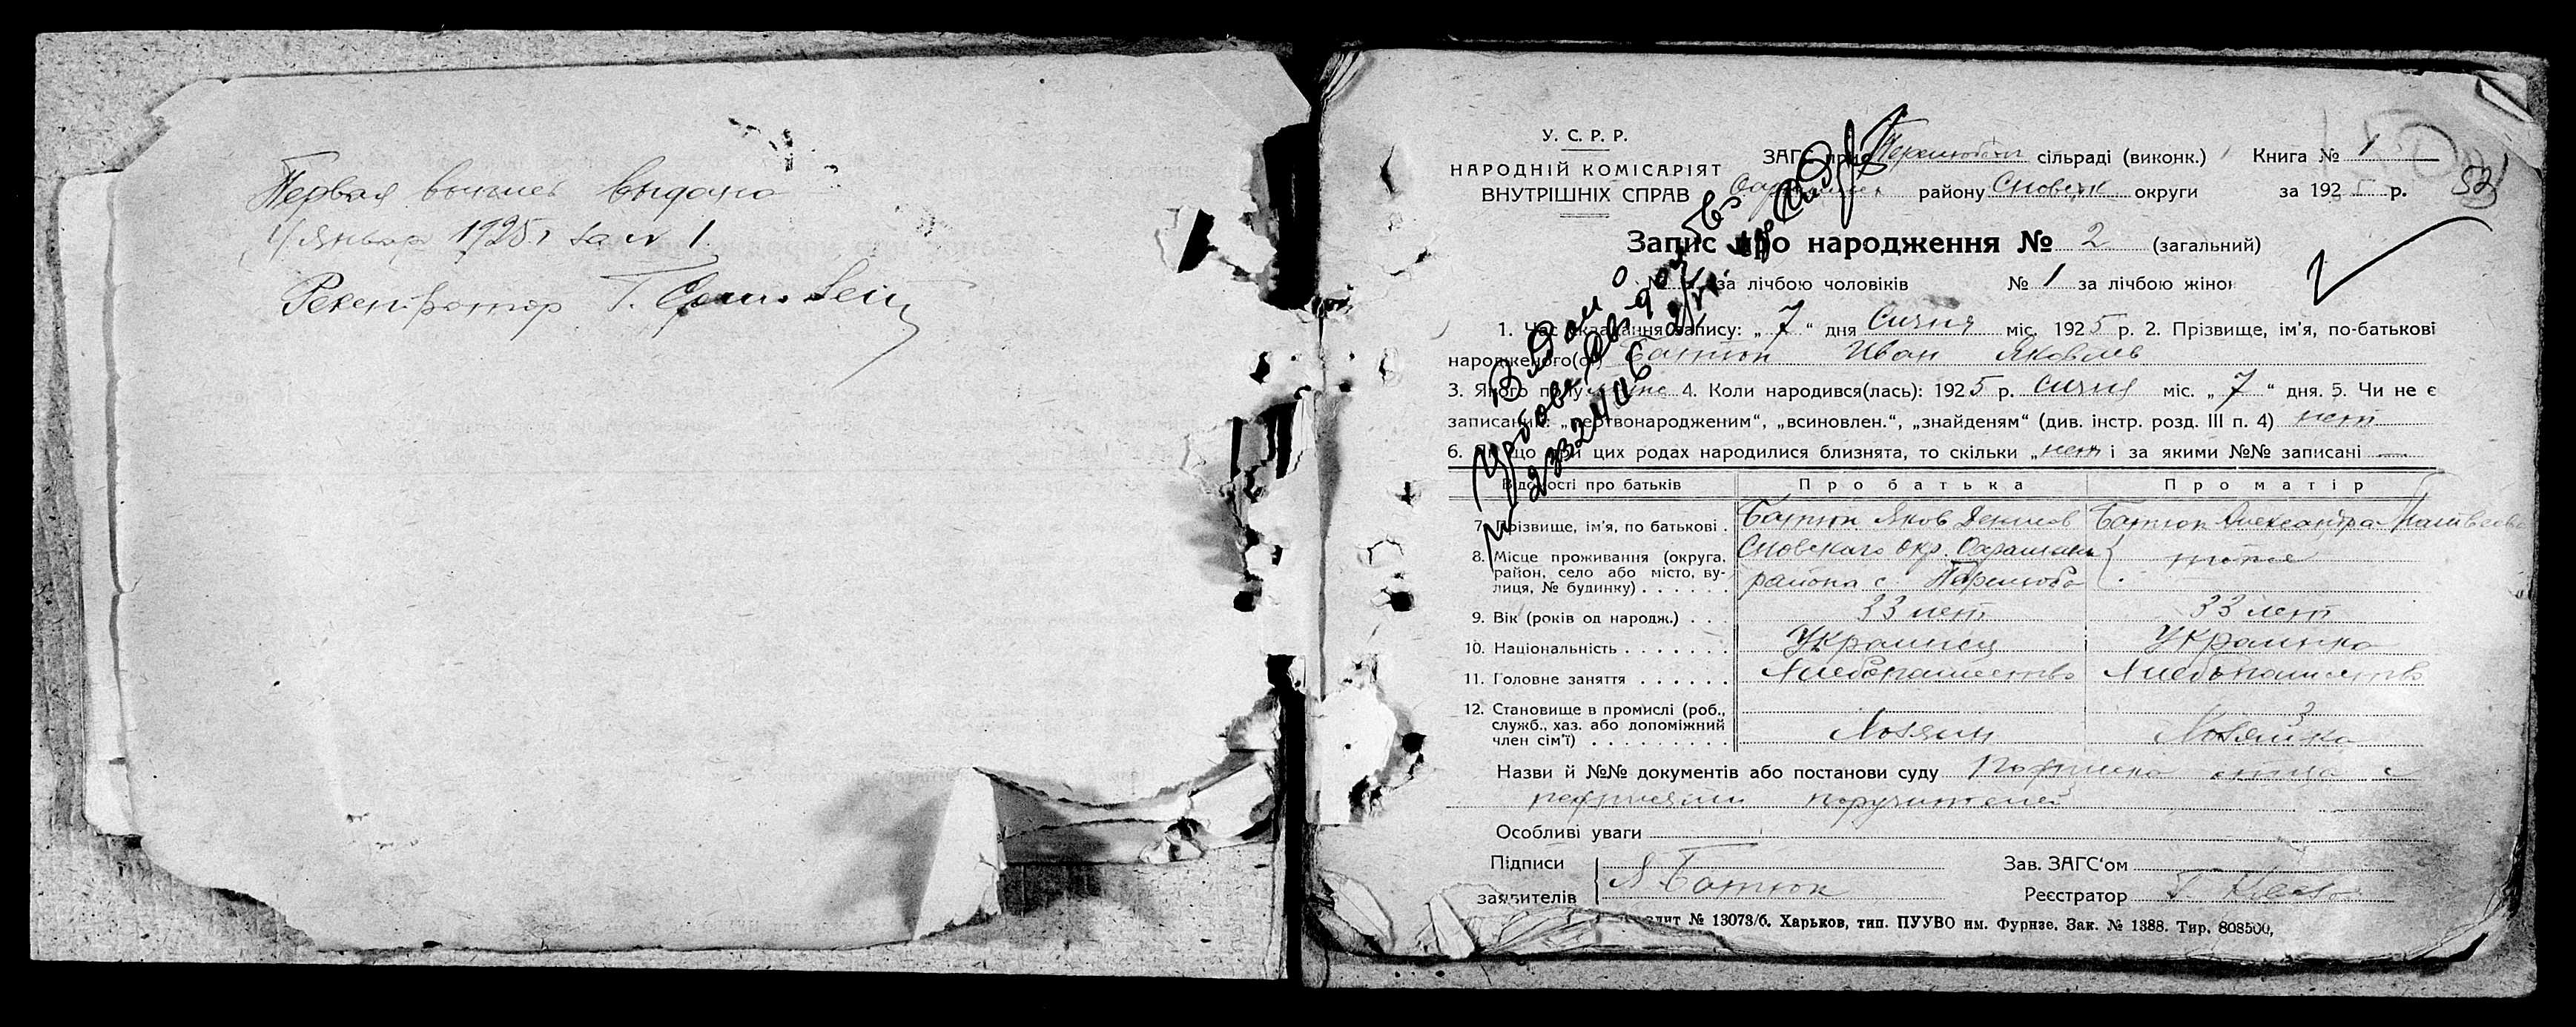 Первая выпись выдана
Январ 1925 г за № 1.
Регистратор Т.
У. С. Р. Р.
НАРОДНІЙ КОМІСАРІЯТ
ВНУТРІШНІХ СПРАВ
ЗАГС при сільраді (виконк.) Книга № 1
району Сновск округи за 1925 р.
53
Запис про народження № 2 (загальний)
за лічбою чоловіків № 1 за лічбою жінок
1. Час складання запису: „7“ дня Сичня міс. 1925 р. 2. Прізвище, ім'я, по-батькові
народженого(ої) Батюк Иван Яковлев
3. Якого полу 4. Коли народився(лась): 1925 р. сичня міс. „7“ дня. 5. Чи не є
записаний: „мертвонародженим“, „всиновлен.“, „знайденям“ (див. інстр. розд. III п. 4) нет
6. Якщо при цих родах народилися близнята, то скільки „нет і за якими №№ записані —
Відомості про батьків Про батька Про матір
7. Прізвище, ім'я, по батькові . Батюк Яков Денисов Батюк Александра
8. Місце проживання (округа, район, село або місто, вулиця, № будинку) . . . . . . Сновского окр.
района с.
9. Вік (років од народж.) . . . 33 лет 33 лет
10. Національність . . . . . . . Украинец Украинка
11. Головне заняття . . . . . . Хлебопашество Хлебопашество
12. Становище в промислі (роб., служб., хаз. або допоміжний член сім'ї) . . . . . . . . . Хозяин Хозяйка
Назви й №№ документів або постанови суду Подписка отца с
подписями поручителей
Особливі уваги
Підписи Зав. ЗАГС'ом
заявителів Я Батюк Реєстратор Т.
№ 13073/б. Харьков, тип. ПУУВО им. Фрунзе. Зак. № 1388. Тир. 808500,